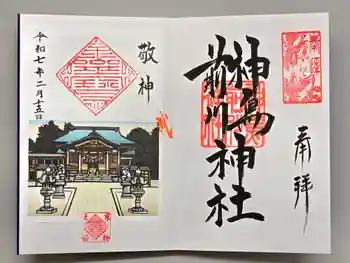 奉拝
神鳥
前川
神社
敬神
令和七年二月十五日